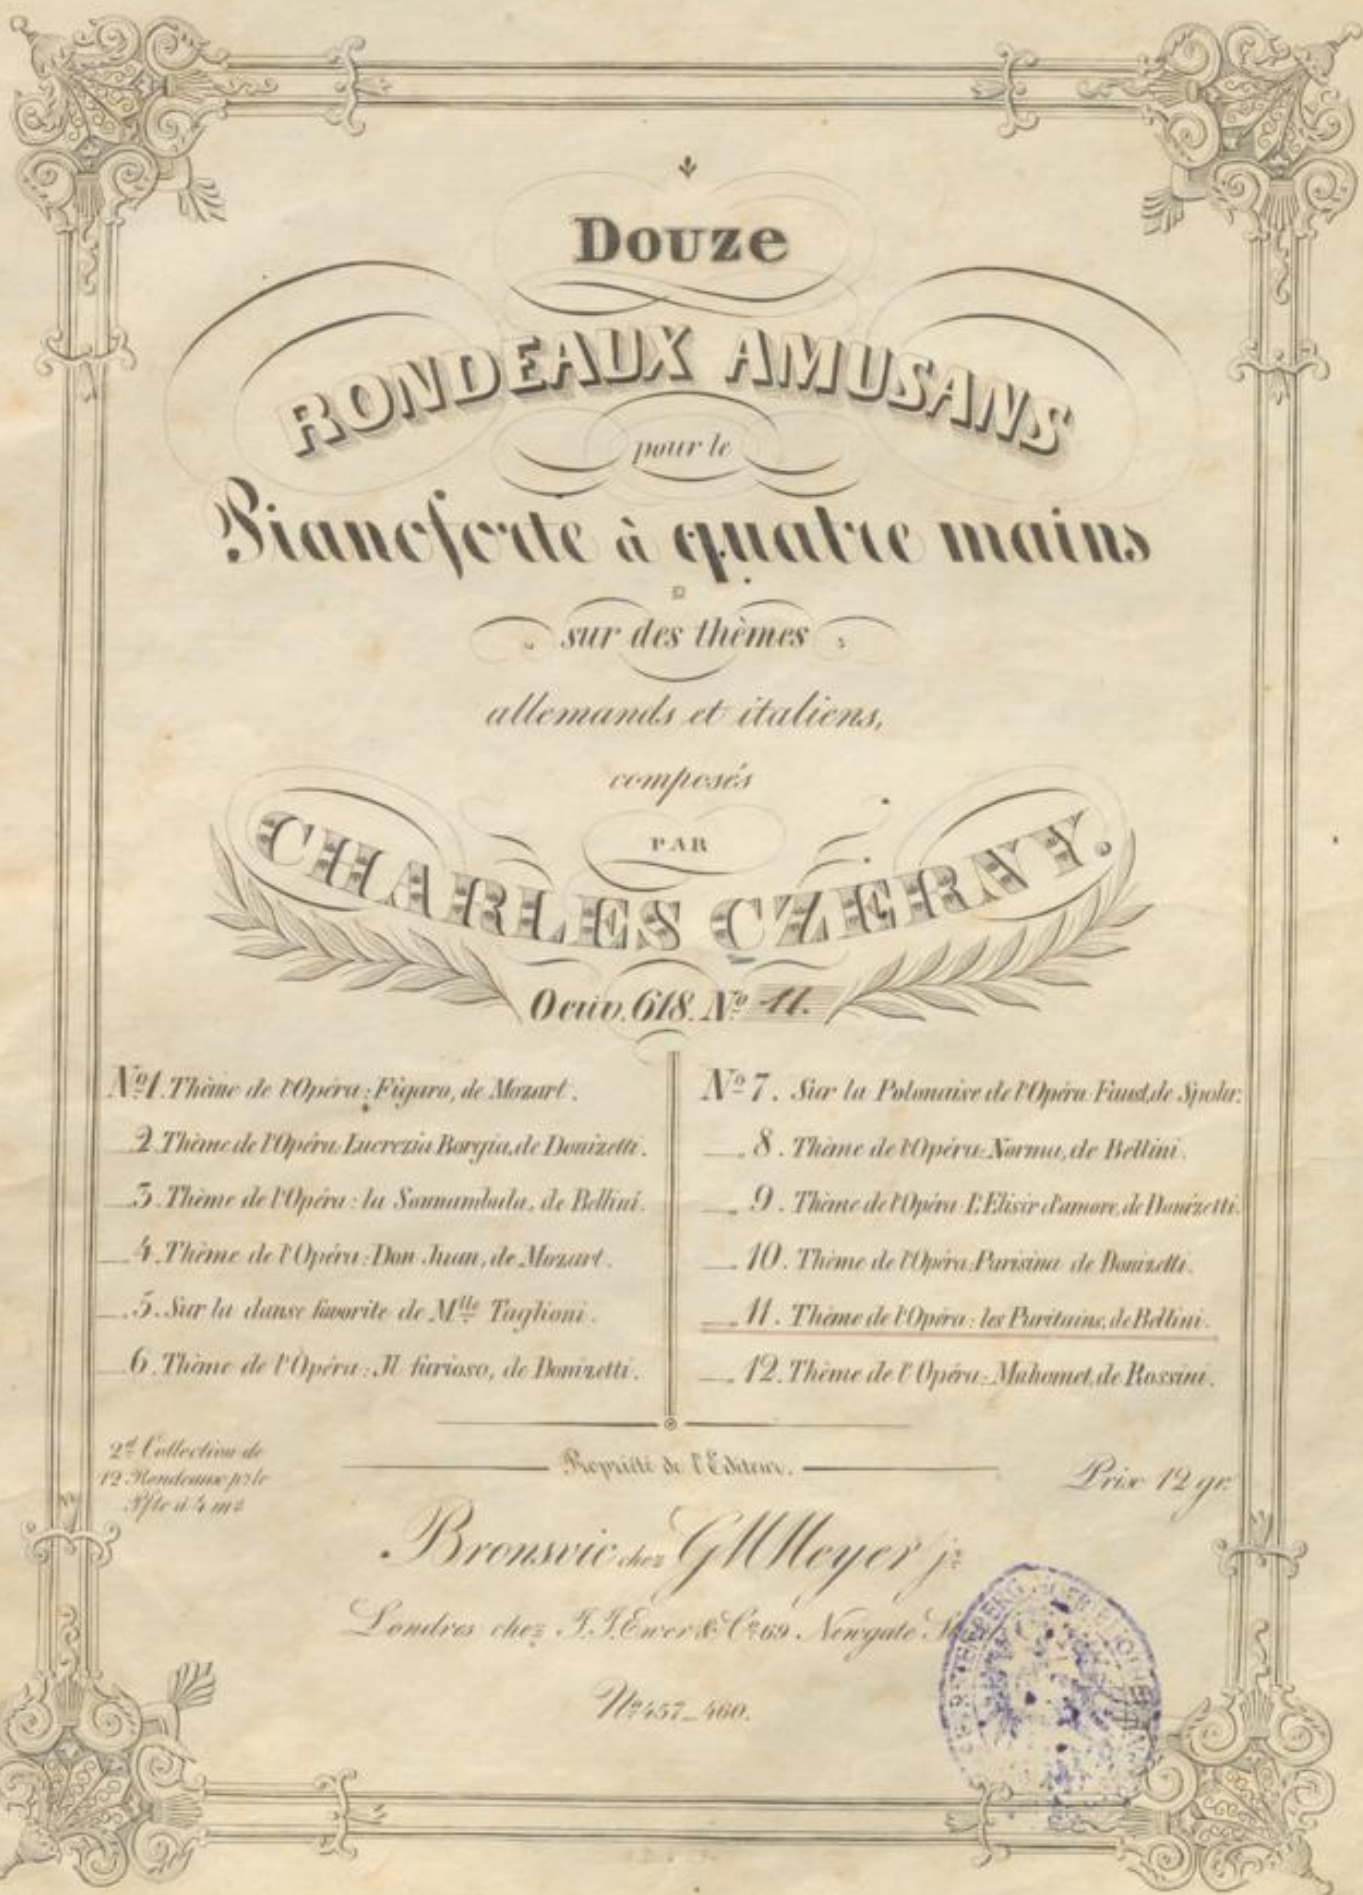 Douze
RONDEAUX AMUSANS
pour le
Pianoforte à quatre mains
sur des thèmes
allemands et italiens,
composés
PAR
CHARLES CZERNY.
Oeuv. 618. No 11.
No 1. Thème de l'Opéra: Figaro, de Mozart.
2. Thème de l'Opéra: Lucrezia Borgia, de Donizetti.
3. Thème de l'Opéra: la Sonnambula, de Bellini.
4. Thème de l'Opéra: Don Juan, de Mozart.
5. Sur la danse favorite de Mlle Taglioni.
6. Thème de l'Opéra: Il furioso, de Donizetti.
No 7. Sur la Polonaise de l'Opéra Faust, de Spohr.
8. Thème de l'Opéra: Norma, de Bellini.
9. Thème de l'Opéra: L'Elisir d'amore, de Donizetti.
10. Thème de l'Opéra: Parisina de Donizetti.
11. Thème de l'Opéra: les Puritains, de Bellini.
12. Thème de l'Opéra: Mahomet, de Rossini.
2d Collection de
12 Rondeaux pr le
Pfte à 4 ms
Propriété de l'Editeur.
Prix 12 gr.
Bronsvic chez G M Meyer jr
Londres chez J. J. Ewer & Co 69. Newgate
No 457_460.